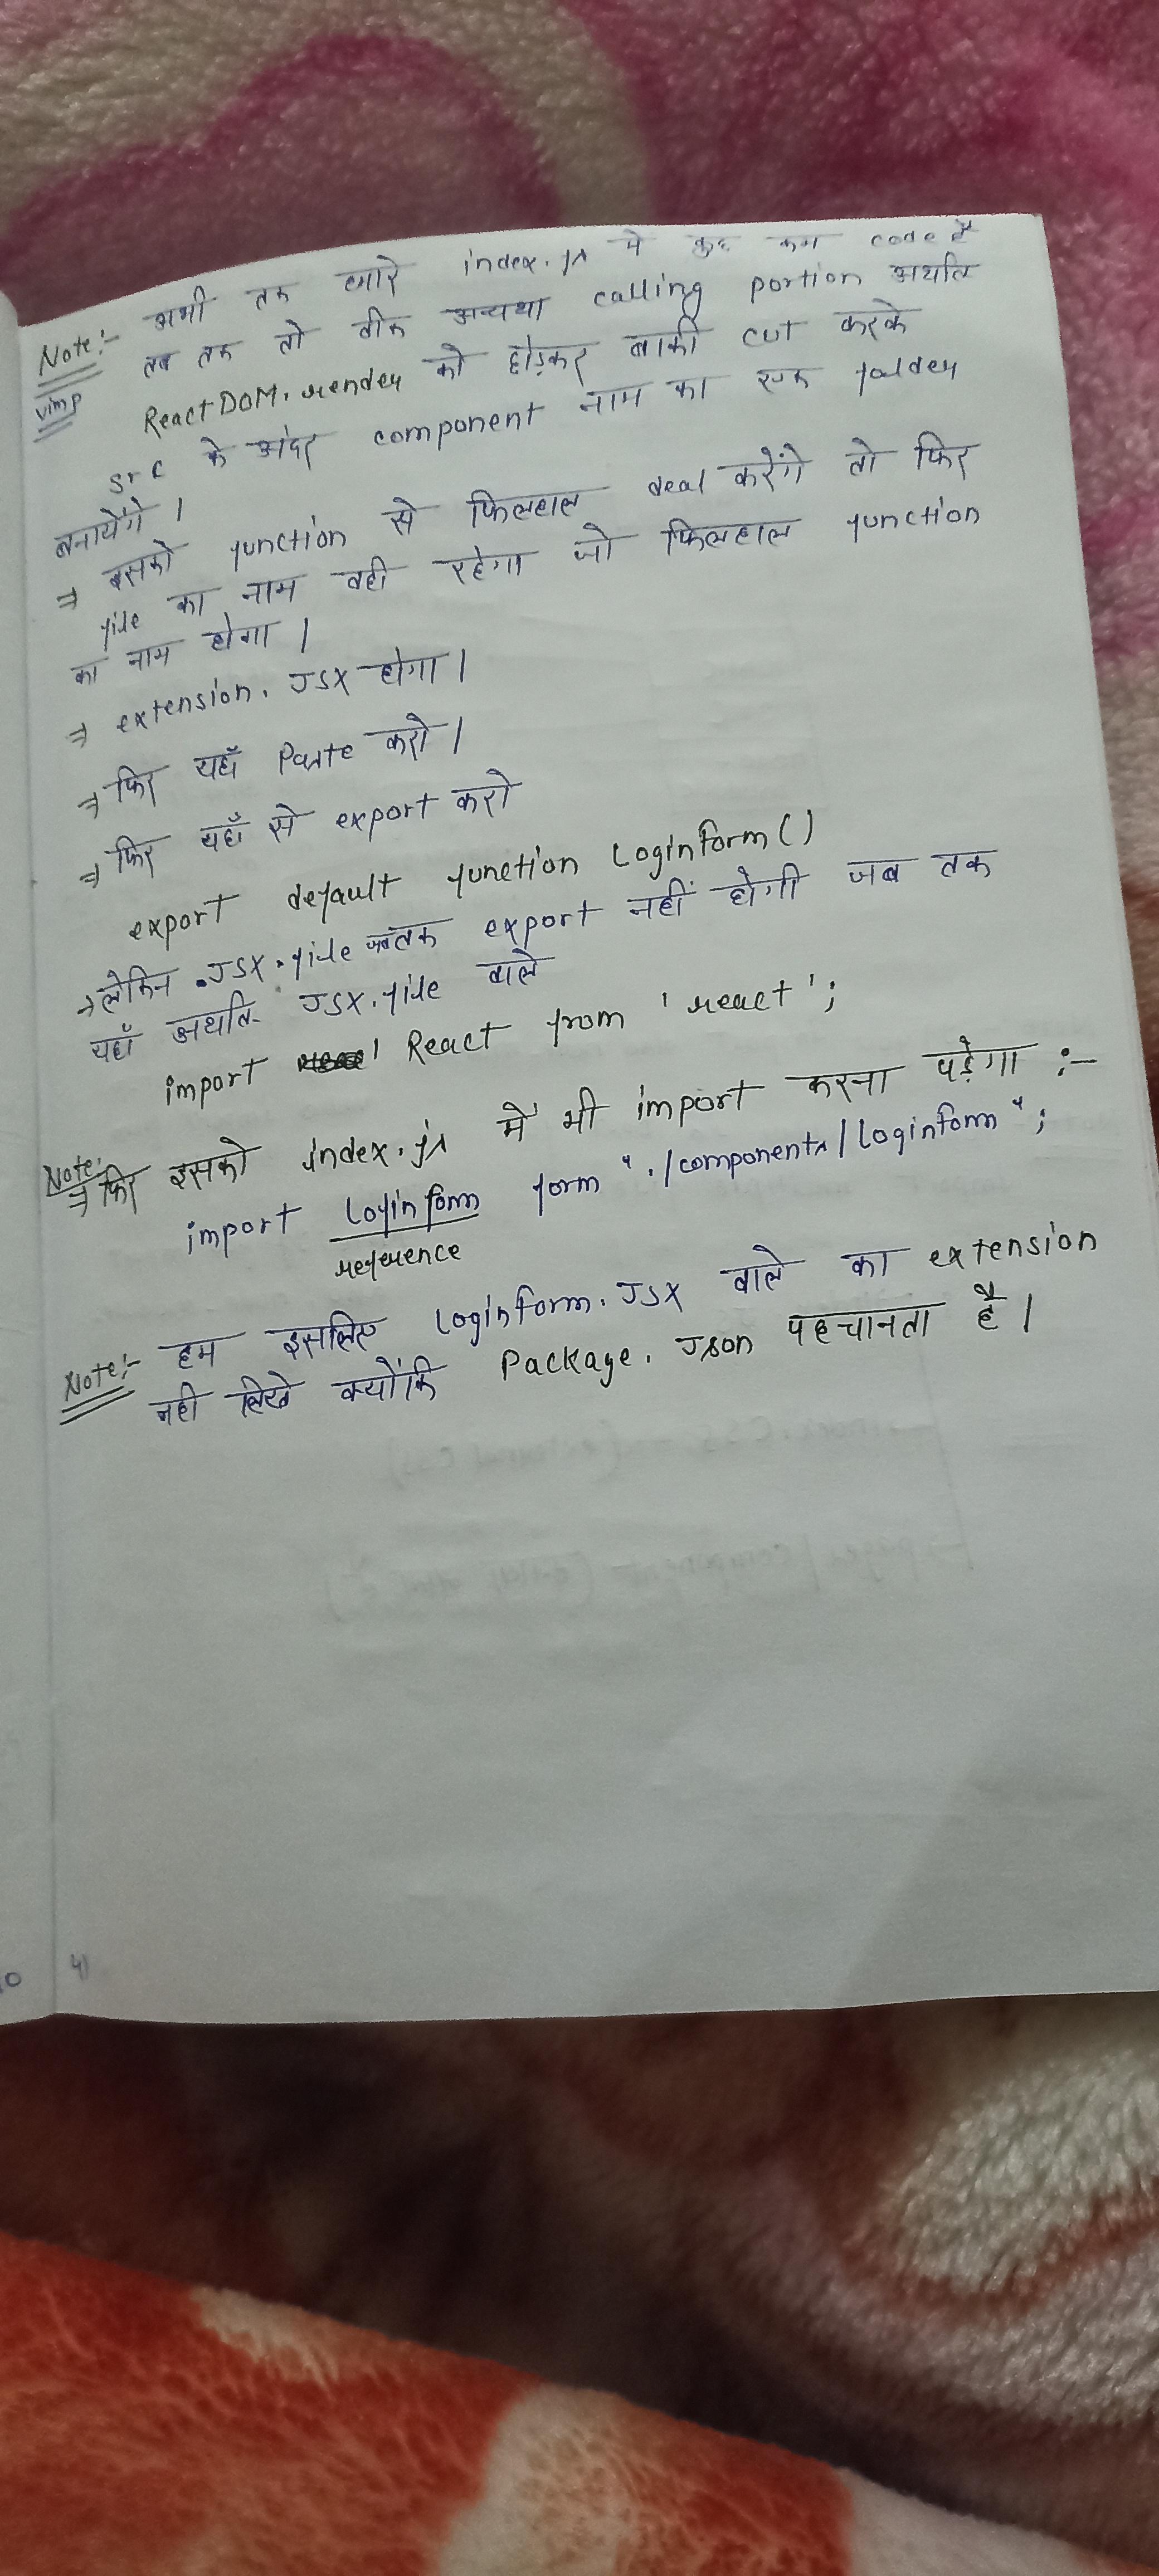 Note:- अभी तक हमारे index.js मे कुछ कम code है
vimp तब तक तो ठीक अन्यथा calling portion अर्थात
ReactDOM.render को छोड़कर बाकी cut करके
src के अंदर component नाम का एक folder
बनायेंगे |
⇒ इसको function से फिलहाल deal करेंगे तो फिर
file का नाम वही रहेगा जो फिलहाल function
का नाम होगा |
⇒ extension. JSX होगा |
⇒ फिर यहाँ Paste करो |
⇒ फिर यहाँ से export करो
export default function Loginform()
→ लेकिन .JSX.file जबतक export नहीं होगी जब तक
यहाँ अर्थात- JSX.file वाले
import React from 'react';
Note:
⇒ फिर इसको index.js में भी import करना पड़ेगा :-
import Loginform form "./components/Loginform";
reference
Note:- हम इसलिए Loginform.JSX वाले का extension
नही लिखे क्योंकि Package.Json पहचानता है |
4)